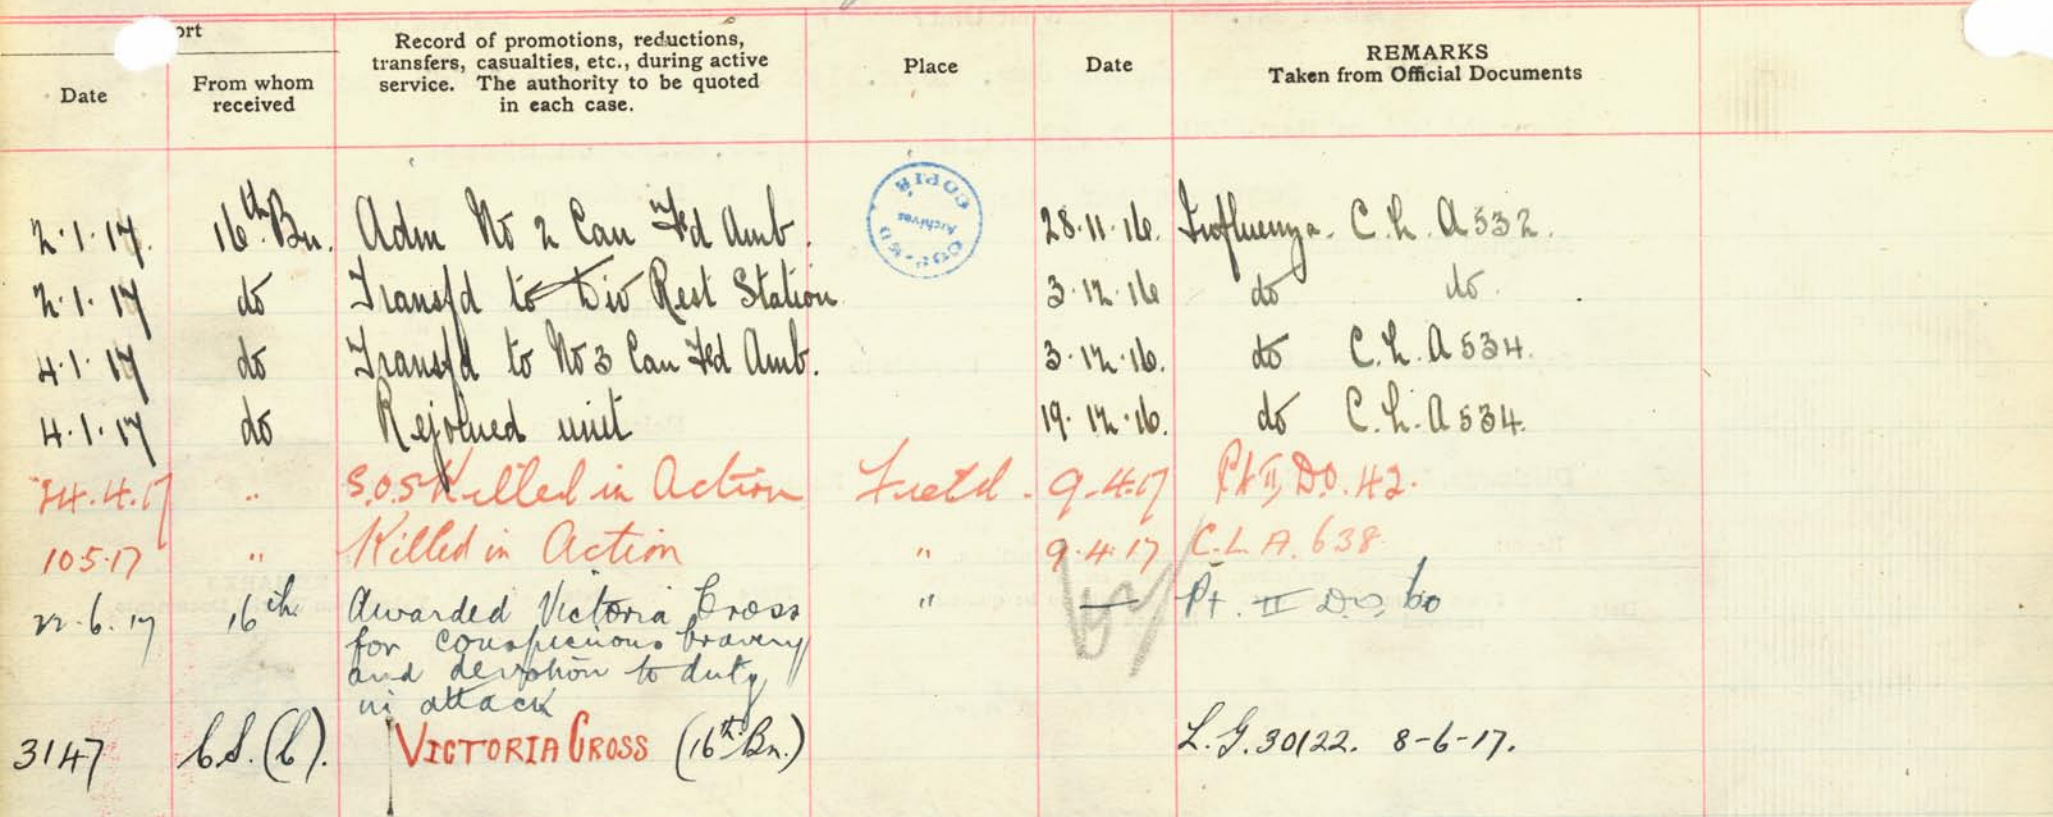 ort
Date
From whom
received
Record of promotions, reductions,
transfers, casualties, etc., during active
service. The authority to be quoted
in each case.
Place
Date
REMARKS
Taken from Official Documents
2.1.17. 16th Bn. Adm No 2 Can Fd Amb. 28.11.16. Influenza. C.L. A532.
2.1.17 do Transfd to Div Rest Station 3.12.16 do do.
4.1.17 do Transfd to No 3 Can Fd Amb. 3.12.16. do C.L. A534.
4.1.17 do Rejoined unit 19.12.16. do C.L. A534.
24.4.17 " S.O.S Killed in Action Field. 9-4-17 Pt II, D.O. 42.
10 5.17 " Killed in Action " 9.4.17 C.L. A. 638
22.6.17 16th Awarded Victoria Cross " — Pt. II D.O. 60
for conspicuous bravery
and devotion to duty
in attack
3147 VICTORIA CROSS (16th Bn.) L.G. 30122. 8-6-17.
COPIED
Archives
COPIÉ